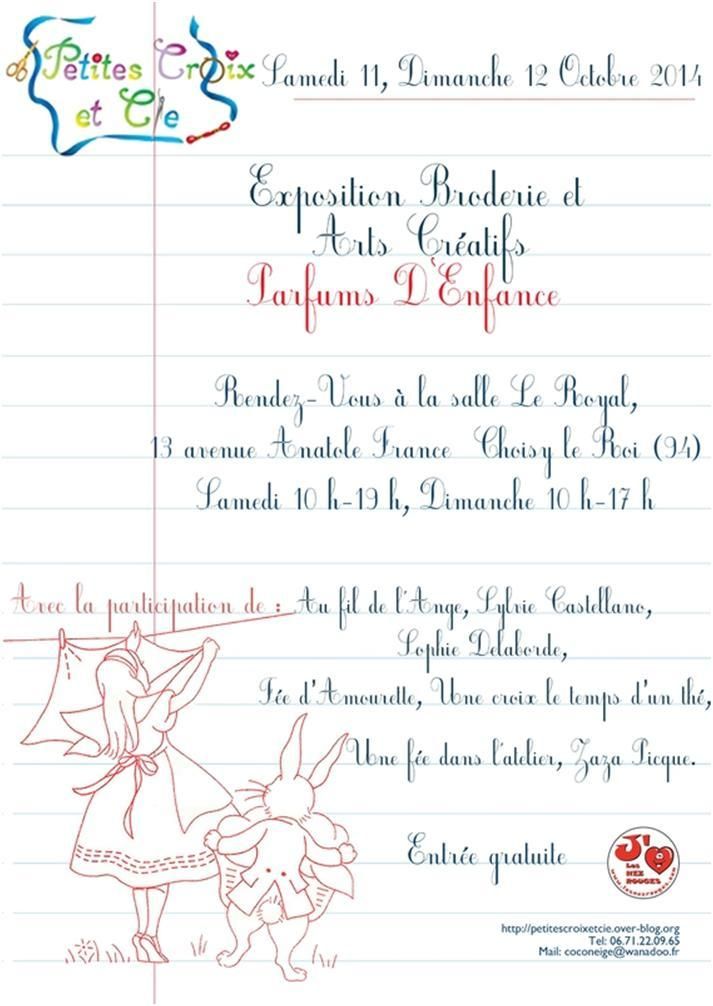 Petites Croix
et Cie
Samedi 11, Dimanche 12 Octobre 2014
Exposition Broderie et
Arts Créatifs
Parfums D'Enfance
Rendez-Vous à la salle Le Royal,
13 avenue Anatole France Choisy le Roi (94)
Samedi 10 h-19 h, Dimanche 10 h-17 h
Avec la participation de : Au fil de l'Ange, Sylvie Castellano,
Sophie Delaborde,
Fée d'Amourette, Une croix le temps d'un thé,
Une fée dans l'atelier, Zaza Picque.
Entrée gratuite
J'
Les
NEZ
ROUGES
www.lesnezrouges.com
http://petitescroixetcie.over-blog.org
Tel: 06.71.22.09.65
Mail: coconeige@wanadoo.fr